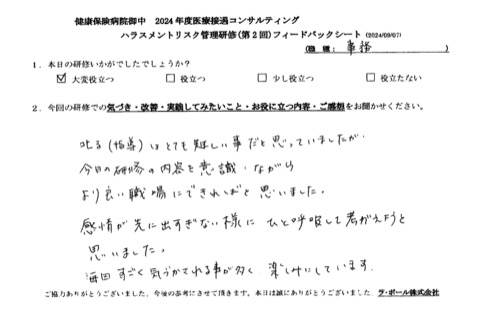 健康保険病院御中 2024年度医療接遇コンサルティング
ハラスメントリスク管理研修(第2回)フィードバックシート (2024/09/07)
(職種: 事務 )
1. 本日の研修いかがでしたでしょうか?
☑ 大変役立つ □ 役立つ □ 少し役立つ □ 役立たない
2. 今回の研修での気づき・改善・実践してみたいこと・お役に立つ内容・ご感想をお聞かせください。
叱る(指導)はとても難しい事だと思っていましたが、
今日の研修の内容を意識しながら
より良い職場にできればと思いました。
感情が先に出すぎない様に ひと呼吸して考がえようと
思いました。
毎回すごく気づかされる事が多く 楽しみにしています。
ご協力ありがとうございました。今後の参考にさせて頂きます。本日は誠にありがとうございました。ラ・ポール株式会社